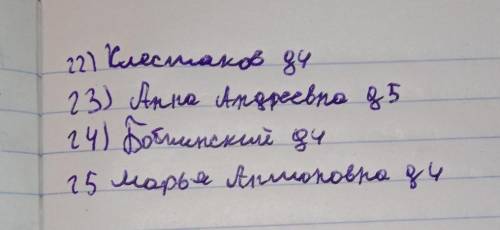 22) Хлестаков д4
23) Анна Андреевна д5
24) Бобчинский д4
25 Марья Антоновна д4